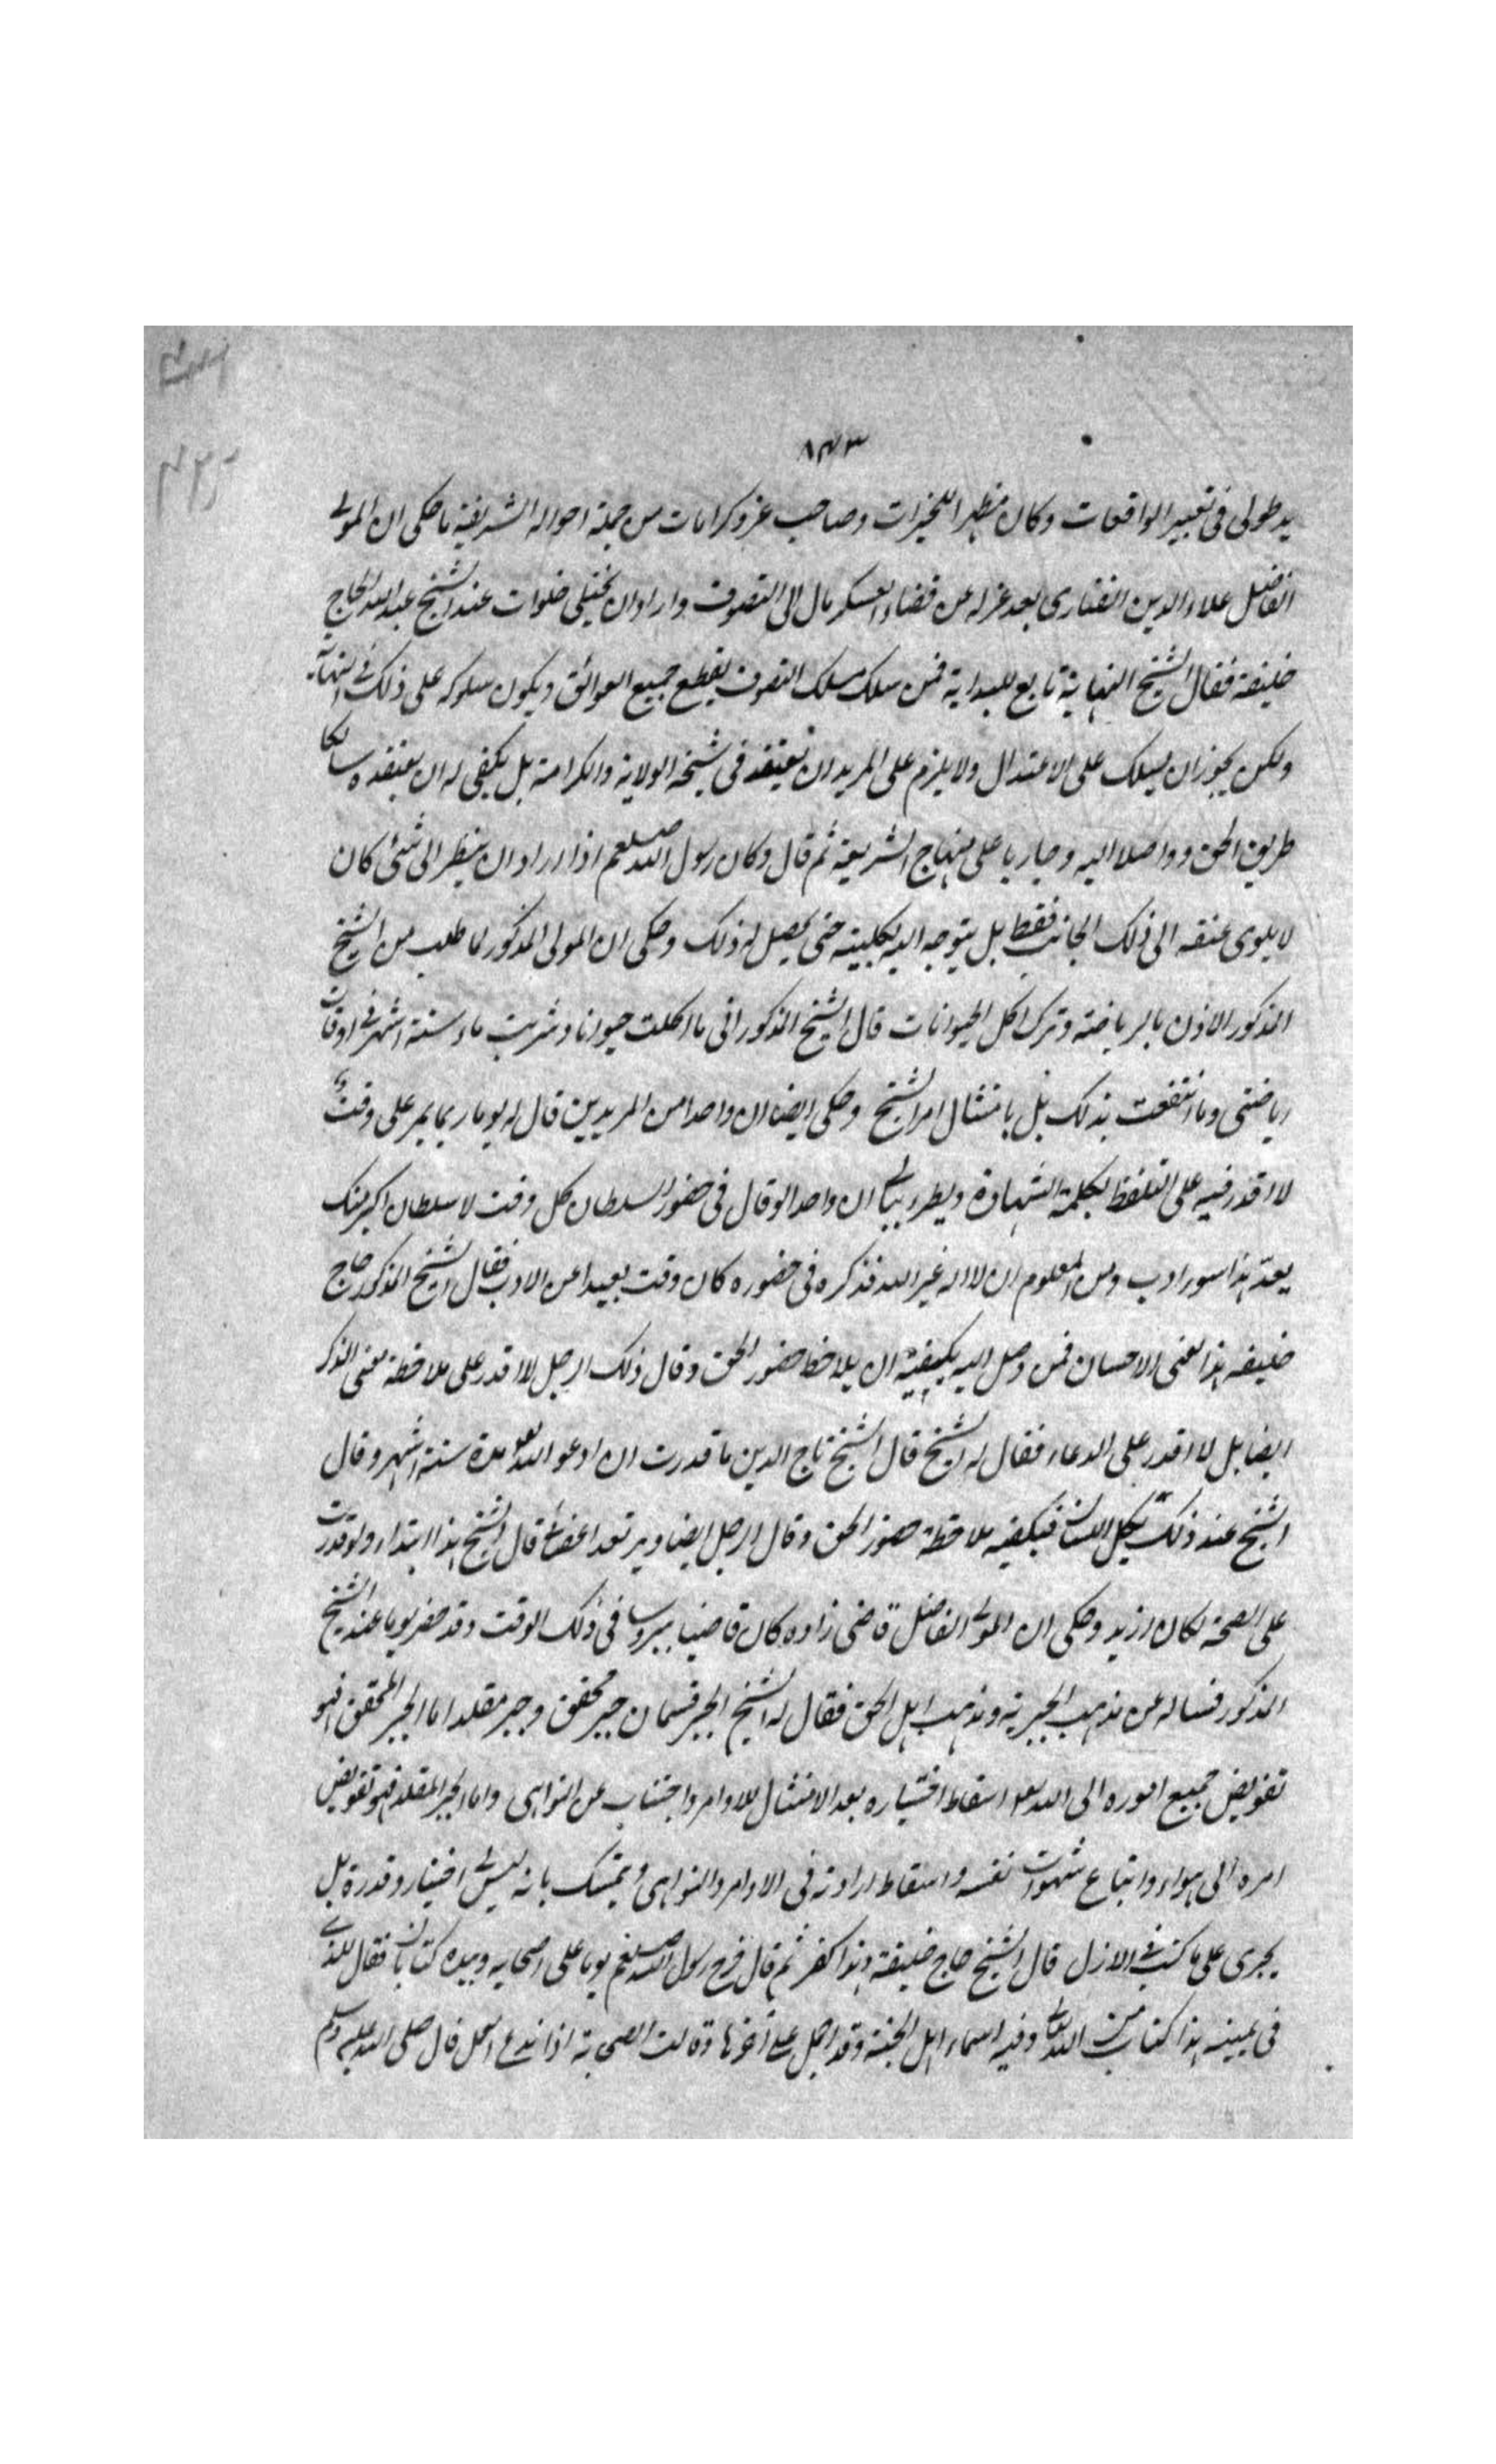 ٨٤٣
يد طولى فى تعبير الواقعات وكان مظهرا للخيرات وصاحب عز وكرامات من جملة احواله الشريفة ما حكى ان المولى
الفاضل علاء الدين الفنارى بعد عزله عن قضاء العسكر مال الى التصوف واراد ان يختلى خلوات عند الشيخ عبد الله الحاج
خليفة فقال الشيخ النهاية تابع للبداية فمن سلك مسلك التصوف بقطع جميع العوائق ويكون سلوكه على ذلك فى النهاية
ولكن يجوز ان يسلك على الاعتدال ولا يلزم على المريد ان يعتقد فى شيخه الولاية والكرامة بل يكفى له ان يعتقده سالكا
طريق الحق وواصلا اليه وجاريا على منهاج الشريعة ثم قال وكان رسول الله صلعم اذا اراد ان ينظر الى شئ كان
لا يلوى عنقه الى ذلك الجانب فقط بل يتوجه اليه بكليته حتى يحصل له ذلك وحكى ان المولى المذكور لما طلب من الشيخ
المذكور الاذن بالرياضة وترك اكل الحيوانات قال الشيخ المذكور انى ما اكلت حيوانا وشربت ماء ستة اشهر فى اوقات
رياضتى وما انتفعت بذلك بل بامتثال امر الشيخ وحكى ايضا ان واحدا من المريدين قال له يوما ربما يمر على وقت
لا اقدر فيه على التلفظ بكلمة الشهادة ويطرء ببالى ان واحدا لو قال فى حضور السلطان كل وقت لا سلطان اكبر منك
يعد هذا سوء ادب ومن المعلوم ان لا اله غير الله فذكره فى حضوره كان وقت بعيدا عن الادب فقال الشيخ المذكور حاج
خليفه هذا معنى الاحسان فمن وصل اليه يكيفيه ان يلاحظ حضور الحق وقال ذلك الرجل لا اقدر على ملاحظة معنى الذكر
ايضا بل لا اقدر على الدعاء فقال له الشيخ قال الشيخ تاج الدين ما قدرت ان ادعو الله مدة ستة اشهر وقال
الشيخ عند ذلك يكل اللسان فيكفيه ملاحظة حضور الحق وقال الرجل ايضا ويرتعد اعضائى قال الشيخ هذا ابتداء ولو قدرت
على الصحة لكان ازيد وحكى ان المولى الفاضل قاضى زاده كان قاضيا ببروسا فى ذلك الوقت وقد حضر يوما عند الشيخ
المذكور فساله عن مذهب الجبرية ومذهب اهل الحق فقال له الشيخ الجبر قسمان جبر محقق وجبر مقلد اما الجبر المحقق فهو
تفويض جميع اموره الى الله اسقاط اختياره بعد الامتثال للاوامر واجتناب عن النواهى واما الجبر المقلد فهو تفويض
امره الى هواه واتباع شهوات نفسه واسقاط ارادته فى الاوامر والنواهى ويتمسك بانه ليس لى اختيار وقدرة بل
يجرى على ما كتب فى الازل قال الشيخ حاج خليفة وهذا كفر ثم قال خرج رسول الله صلعم يوما على اصحابه وبيده كتابان فقال للذى
فى يمينه هذا كتاب من الله وفيه اسماء اهل الجنة وقد اجمل على آخرها وقالت الصحابة اذا ندع العمل قال صلى الله عليه وسلم